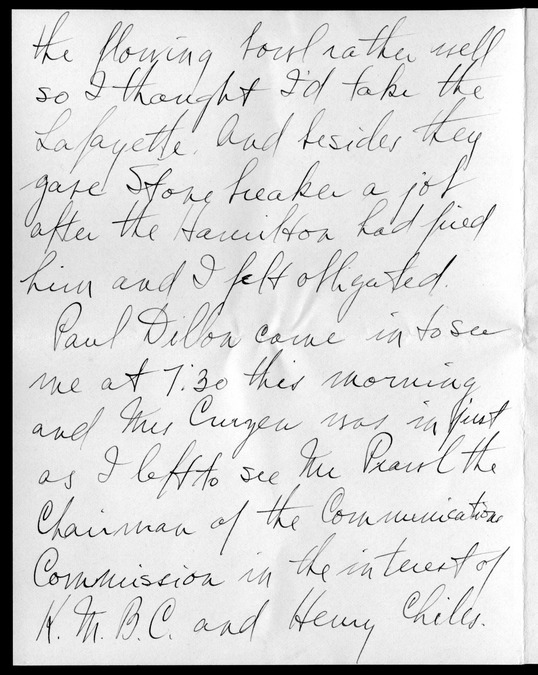 the flowing bowl rather well
so I thought I'd take the
Lafayette. And besides they
gave Stonebreaker a job
after the Hamilton had fired
him and I felt obligated.
Paul Dillon came in to see
me at 7:30 this morning
and Mrs was in just
as I left to see Mr the
Chairman of the Communications
Commission in the interest of
K.M.B.C. and Henry Chiles.